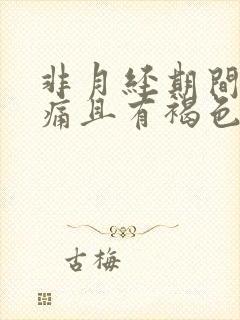 非月经期間
痛且有褐色
古梅